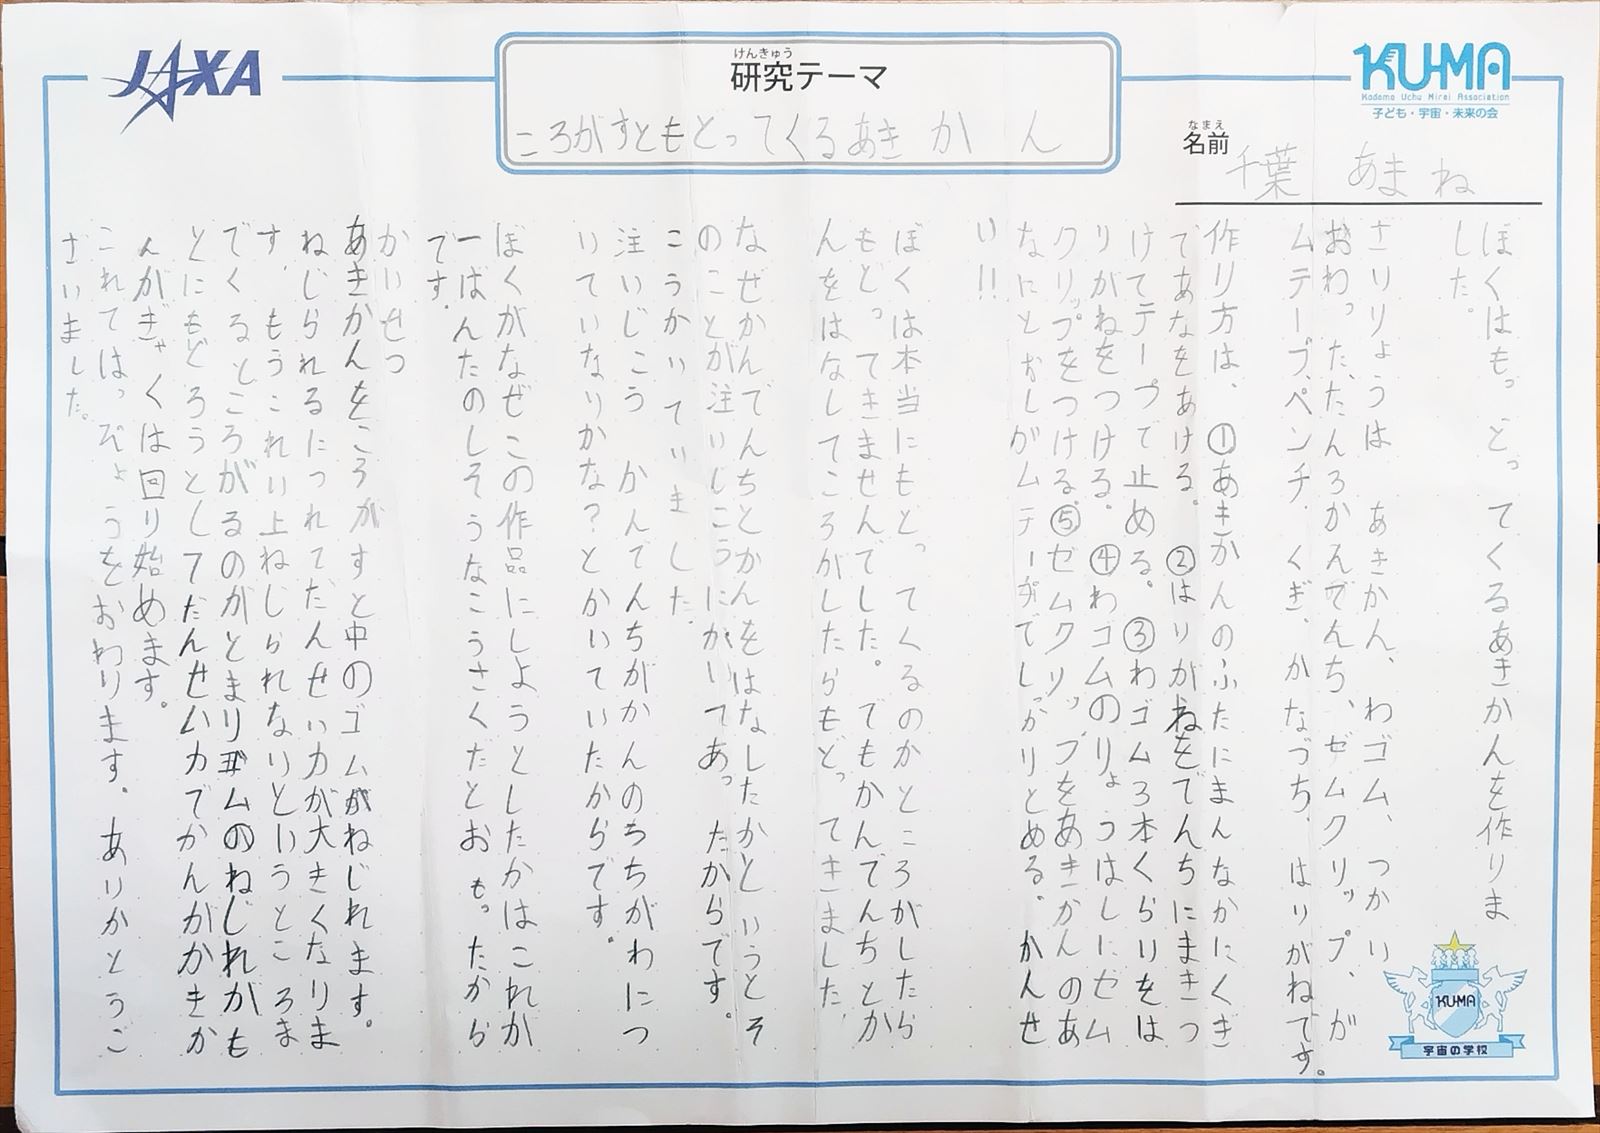 JAXA
けんきゅう
研究テーマ
ころがすともどってくるあきかん
KU-MA
Kodomo Uchu Mirai Association
子ども・宇宙・未来の会
なまえ
名前
千葉 あまね
ぼくはもどってくるあきかんを作りま
した。
ざいりょうは あきかん、わゴム、つかい
おわった、たんろかんでんち、ゼムクリップ、が
ムテープ、ペンチ、くぎ、かなづち、はりがねです。
作り方は、①あきかんのふたにまんなかにくぎ
であなをあける。②はりがねをでんちにまきつ
けてテープで止める。③わゴム3本くらいをは
りがねをつける。④わゴムのりょうはしにゼム
クリップをつける。⑤ゼムクリップをあきかんのあ
なにとおしがムテープでしっかりとめる。かんせ
い!!
ぼくは本当にもどってくるのかところがしたら
もどってきませんでした。でもかんでんちとか
んをはなしてころがしたらもどってきました。
なぜかんでんちとかんをはなしたかというとそ
のことが注いじこうにかいてあったからです。
こうかいていました。
注いじこう かんでんちがかんのうちがわにつ
いていないかな?とかいていたからです。
ぼくがなぜこの作品にしようとしたかはこれが
一ばんたのしそうなこうさくだとおもったから
です。
かいせつ
あきかんをころがすと中のゴムがねじれます。
ねじられるにつれてだんせい力が大きくなりま
す。もうこれい上ねじられないというところま
でくるところがるのがとまりゴムのねじれがも
とにもどろうとしてだんせい力でかんがかきか
んがぎゃくは回り始めます。
これではっぴょうをおわります。ありがとうご
ざいました。
KU-MA
宇宙の学校